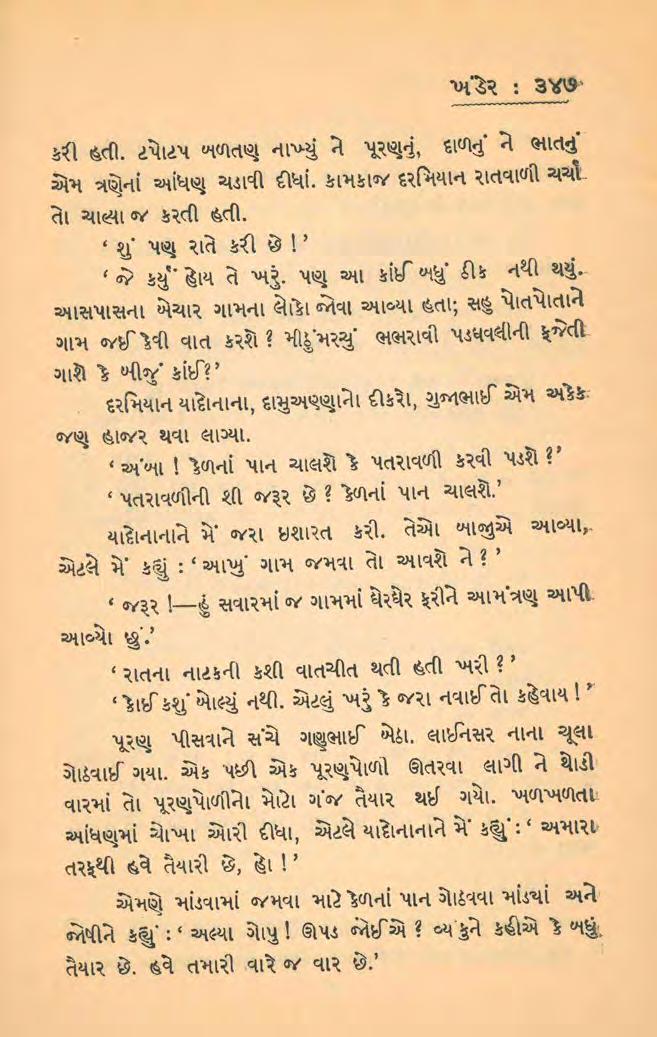 ખંડેર : ૩૪૭
કરી હતી. ટપોટપ બળતણ નાખ્યું ને પૂરણનું, દાળનું ને ભાતનું
એમ ત્રણેનાં આંધણ ચડાવી દીધાં. કામકાજ દરમિયાન રાતવાળી ચર્ચા
તો ચાલ્યા જ કરતી હતી.
‘ શું પણ રાતે કરી છે ! ’
‘ જે કર્યું હોય તે ખરું. પણ આ કાંઈ બધું ઠીક નથી થયું.
આસપાસના બેચાર ગામના લોકો જોવા આવ્યા હતા; સહુ પોતપોતાને
ગામ જઈ કેવી વાત કરશે ? મીઠુંમરચું ભભરાવી પડઘવલીની ફજેતી
ગાશે કે બીજું કાંઈ?’
દરમિયાન યાદોનાના, દામુઅણ્ણાનો દીકરો, ગુજાભાઈ એમ અકેક
જણ હાજર થવા લાગ્યા.
‘ અંબા ! કેળનાં પાન ચાલશે કે પતરાવળી કરવી પડશે ?’
‘ પતરાવળીની શી જરૂર છે ? કેળનાં પાન ચાલશે.’
યાદોનાનાને મેં જરા ઇશારત કરી. તેઓ બાજુએ આવ્યા,
એટલે મેં કહ્યું : ‘ આખું ગામ જમવા તો આવશે ને ? ’
‘ જરૂર !—હું સવારમાં જ ગામમાં ઘેરઘેર ફરીને આમંત્રણ આપી
આવ્યો છું.’
‘ રાતના નાટકની કશી વાતચીત થતી હતી ખરી ? ’
‘ કોઈ કશું બોલ્યું નથી. એટલું ખરું કે જરા નવાઈ તો કહેવાય ! ’
પૂરણ પીસવાને સંચે ગણુભાઈ બેઠા. લાઈનસર નાના ચૂલા
ગોઠવાઈ ગયા. એક પછી એક પૂરણપોળી ઊતરવા લાગી ને થોડી
વારમાં તો પૂરણપોળીનો મોટો ગંજ તૈયાર થઈ ગયો. ખળખળતા
આંધણમાં ચોખા ઓરી દીધા, એટલે યાદોનાનાને મેં કહ્યું : ‘ અમારા
તરફથી હવે તૈયારી છે, હો ! ’
એમણે માંડવામાં જમવા માટે કેળનાં પાન ગોઠવવા માંડ્યાં અને
જોષીને કહ્યું : ‘ અલ્યા ગોપુ ! ઊપડ જોઈએ ? વ્યંકુને કહીએ કે બધું
તૈયાર છે. હવે તમારી વારે જ વાર છે.’